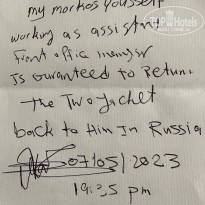 TopHotels
my markos yousself
working as assistant
Front office manager
Is Guranteed to Return
The Two Jacket
back to Him In Russia
07105 | 2023
19:35 pm